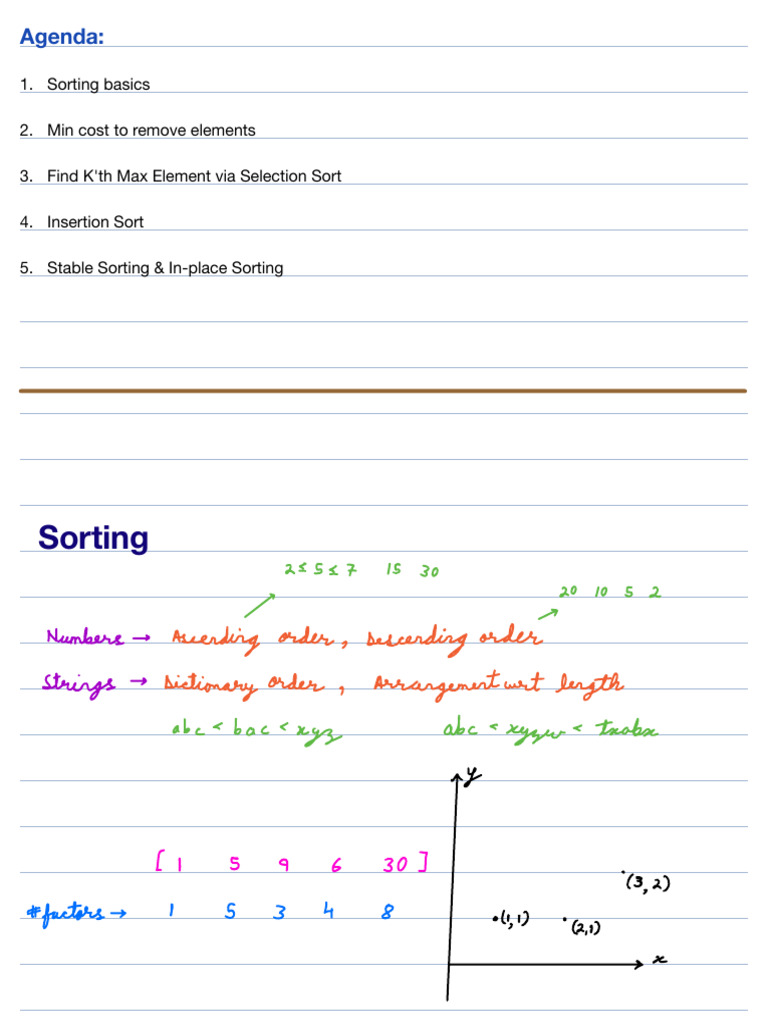 Agenda:
1. Sorting basics
2. Min cost to remove elements
3. Find K'th Max Element via Selection Sort
4. Insertion Sort
5. Stable Sorting & In-place Sorting
Sorting
2 ≤ 5 ≤ 7 15 30
20 10 5 2
Numbers → Ascending order, Descending order
Strings → Dictionary order, Arrangement wrt length
abc < bac < xyz abc < xyzw < txabx
y
[ 1 5 9 6 30 ]
(3, 2)
#factors → 1 5 3 4 8
(1, 1)
(2,1)
x